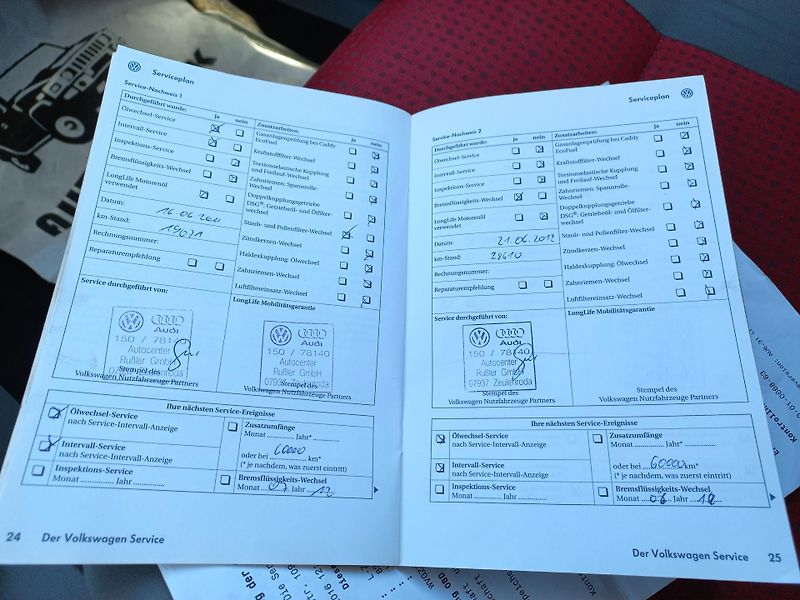 Serviceplan
Service-Nachweis 1
Durchgeführt wurde: ja nein
Ölwechsel-Service
Intervall-Service
Inspektions-Service
Bremsflüssigkeits-Wechsel
LongLife Motorenöl
verwendet
Datum: 16.06 2011
km-Stand: 19671
Rechnungsnummer:
Reparaturempfehlung
Zusatzarbeiten: ja nein
Gasanlagenprüfung bei Caddy
EcoFuel
Kraftstofffilter-Wechsel
Torsionselastische Kupplung
und Freilauf-Wechsel
Zahnriemen: Spannrolle-
Wechsel
Doppelkupplungsgetriebe
DSG®: Getriebeöl- und Ölfilter-
wechsel
Staub- und Pollenfilter-Wechsel
Zündkerzen-Wechsel
Haldexkupplung: Ölwechsel
Zahnriemen-Wechsel
Luftfiltereinsatz-Wechsel
Service durchgeführt von:
Audi
150 / 78140
Autocenter
Rußler GmbH
Stempel des
Volkswagen Nutzfahrzeuge Partners
LongLife Mobilitätsgarantie
Audi
150 / 78140
Autocenter
Rußler GmbH
Stempel des
Volkswagen Nutzfahrzeuge Partners
Ihre nächsten Service-Ereignisse
Ölwechsel-Service
nach Service-Intervall-Anzeige
Intervall-Service
nach Service-Intervall-Anzeige
Inspektions-Service
Monat Jahr
Zusatzumfänge
Monat Jahr*
oder bei 60000 km*
(* je nachdem, was zuerst eintritt)
Bremsflüssigkeits-Wechsel
Monat 07 Jahr 12
24 Der Volkswagen Service
Serviceplan
Service-Nachweis 2
Durchgeführt wurde: ja nein
Ölwechsel-Service
Intervall-Service
Inspektions-Service
Bremsflüssigkeits-Wechsel
LongLife Motorenöl
verwendet
Datum 21.06.2012
km-Stand: 28610
Rechnungsnummer:
Reparaturempfehlung
Zusatzarbeiten: ja nein
Gasanlagenprüfung bei Caddy
EcoFuel
Kraftstofffilter-Wechsel
Torsionselastische Kupplung
und Freilauf-Wechsel
Zahnriemen: Spannrolle-
Wechsel
Doppelkupplungsgetriebe
DSG®: Getriebeöl- und Ölfilter-
wechsel
Staub- und Pollenfilter-Wechsel
Zündkerzen-Wechsel
Haldexkupplung: Ölwechsel
Zahnriemen-Wechsel
Luftfiltereinsatz-Wechsel
Service durchgeführt von:
Audi
150 / 78140
Autocenter
Rußler GmbH
07937 Zeulenroda
Stempel des
Volkswagen Nutzfahrzeuge Partners
LongLife Mobilitätsgarantie
Stempel des
Volkswagen Nutzfahrzeuge Partners
Ihre nächsten Service-Ereignisse
Ölwechsel-Service
nach Service-Intervall-Anzeige
Intervall-Service
nach Service-Intervall-Anzeige
Inspektions-Service
Monat Jahr
Zusatzumfänge
Monat Jahr*
oder bei 60000 km*
(* je nachdem, was zuerst eintritt)
Bremsflüssigkeits-Wechsel
Monat 06 Jahr
Der Volkswagen Service 25